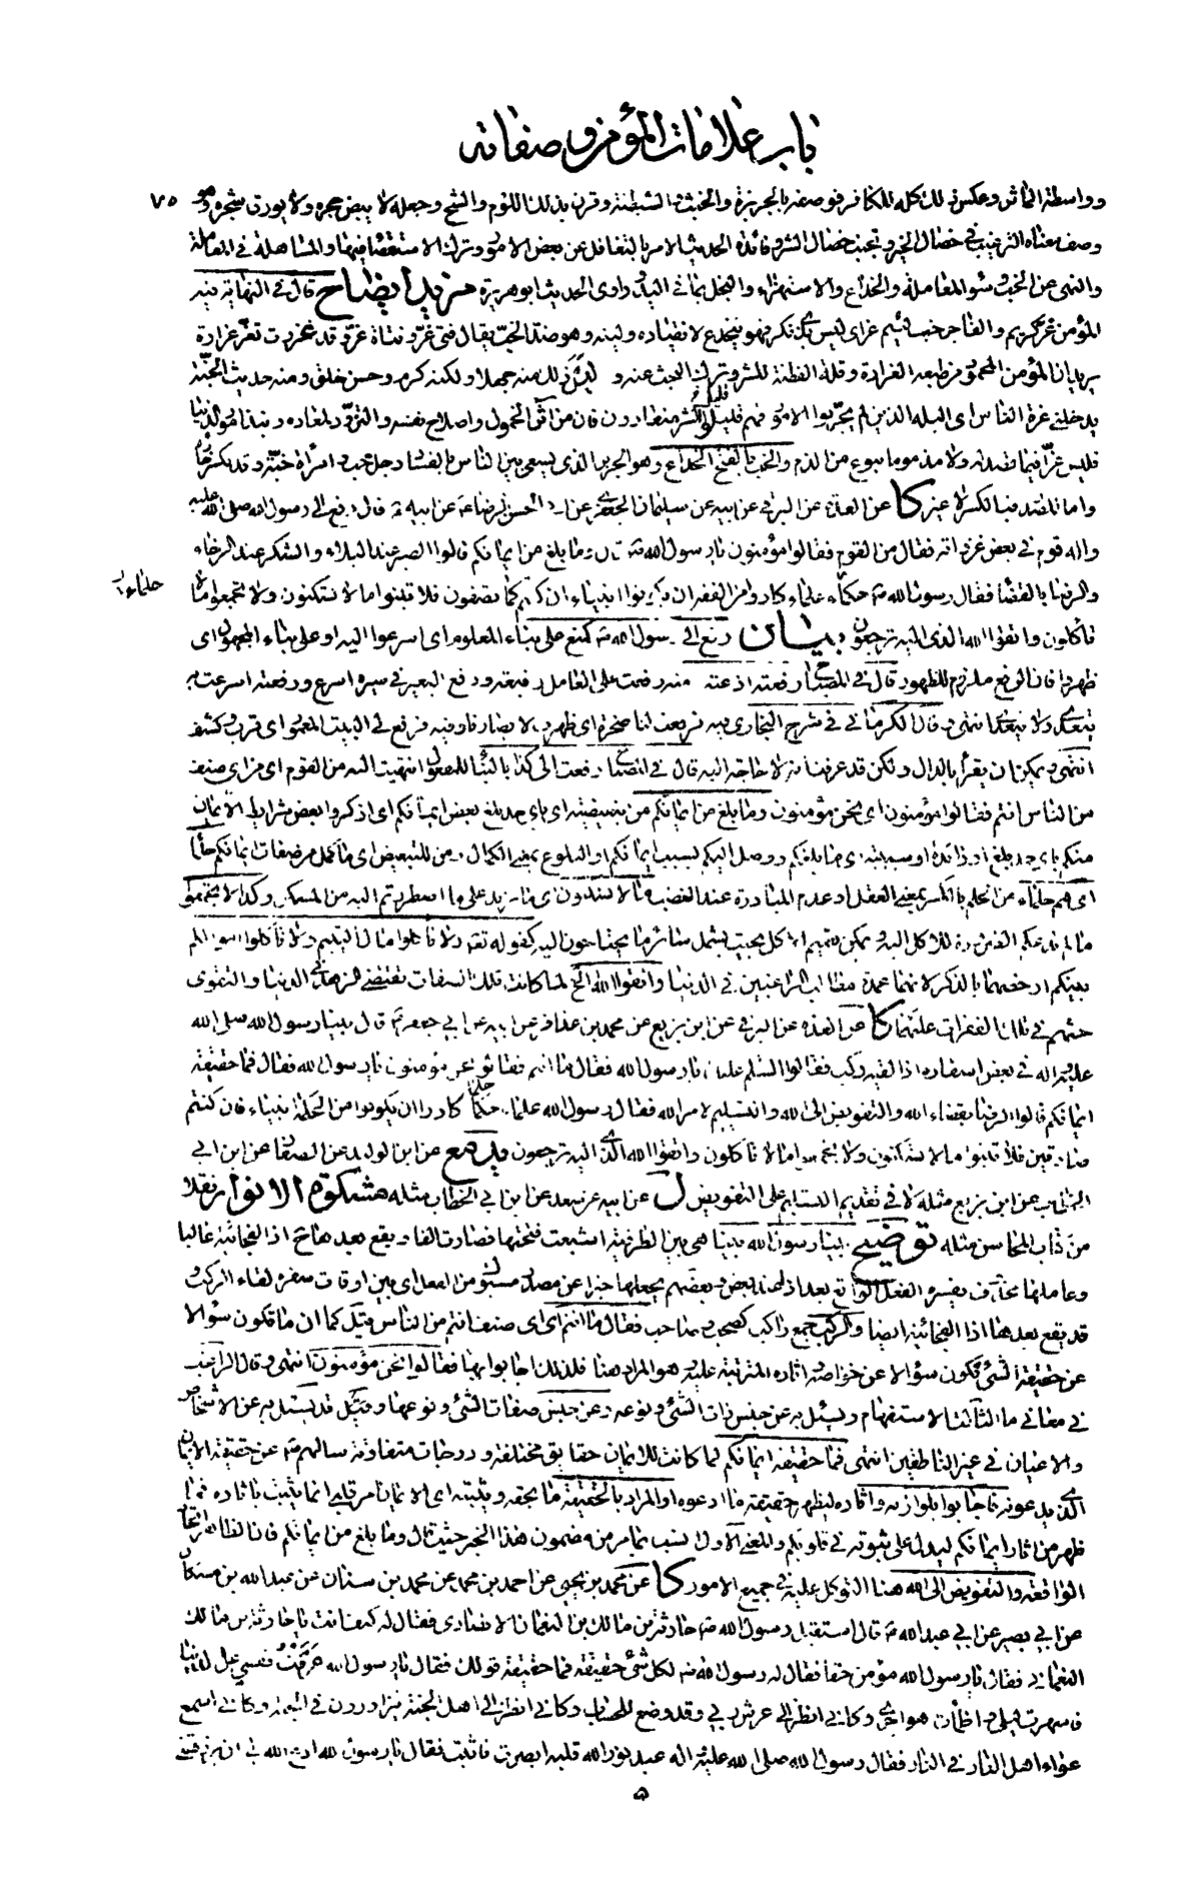 باب علامات المؤمن و صفاته
٧٥
وواسطة المآثر وعكس ذلك كله للكافر فوصفه بالجربزة والخبث والشيطنة وقرن بذلك اللؤم والشح وجعله لا يبض حجره ولا يورق شجره وهو
وصف معناه الترغيب في خصال الخير وتجنب خصال الشر وفائدة الحديث الامر بالتغافل عن بعض الامور وترك الاستقصاء فيها والمساهلة في المعاملة
والنهي عن الخب وسوء المعاملة والخداع والاستهزاء والبخل بما في اليد راوي الحديث ابو هريرة مزيد ايضاح قال في النهاية فيه
المؤمن غر كريم والفاجر خب لئيم غر اي ليس بذي نكر فهو ينخدع لانقياده ولينه وهو ضد الخب يقال فتى غر وفتاة غر وقد غررت تغر غرارة
يريد ان المؤمن المحمود من طبعه الغرارة وقلة الفطنة للشر وترك البحث عنه و ليس ذلك منه جهلا ولكنه كرم وحسن خلق ومنه حديث الجنة
يدخلني غرة الناس اي البله الذين لم يجربوا الامور فهم قليلو الشر منقادون فان من آثر الخمول واصلاح نفسه والتزود لمعاده ونبذ امور الدنيا
فليس غرا فيما قصد له ولا مذموما بنوع من الذم والخب بالفتح الخداع وهو الجربز الذي يسعى بين الناس بالفساد رجل خب وامرأة خبة وقد تكسر خاؤه
واما المصدر فبالكسر لا غير كا عن العدة عن البرقي عن ابيه عن سليمان الجعفري عن ابي الحسن الرضا ع عن ابيه قال رفع الى رسول الله صلى الله عليه
واله قوم في بعض غزواته فقال من القوم فقالوا مؤمنون يا رسول الله قال وما بلغ من ايمانكم قالوا الصبر عند البلاء والشكر عند الرخاء
والرضا بالقضاء فقال رسول الله ص حكماء علماء كادوا من الفقه ان يكونوا انبياء ان كنتم كما تصفون فلا تبنوا ما لا تسكنون ولا تجمعوا ما لا
حلماء
تأكلون واتقوا الله الذي اليه ترجعون بيان رفع الى رسول الله ص كمنع على بناء المعلوم اي اسرعوا اليه او على بناء المجهول اي
ظهروا فان الرفع ملزوم للظهور قال في المصباح رفعته اذعته ومنه رفعت على العامل رفيعة ورفع البعير في سيره اسرع ورفعته اسرعت به
يتعدى ولا يتعدى انتهى وقال الكرماني في شرح البخاري فيه فرفعت لنا صخرة اي ظهرت لابصارنا وفيه فرفع لي البيت المعمور اي قرب وكشف
انتهى ويمكن ان يقرأ بالدال ولكن قد عرفت انه لا حاجة اليه قال في المصباح دفعت الى كذا بالبناء للمفعول انتهيت اليه من القوم اي من اي صنف
من الناس انتم فقالوا مؤمنون اي نحن مؤمنون وما بلغ من ايمانكم من تبعيضية اي باي حد بلغ بعض ايمانكم اي اذكروا بعض شرايط الايمان
منكم باي حد بلغ او زائدة او سببية اي ما بلغكم ووصل اليكم بسبب ايمانكم او البلوغ بمعنى الكمال ومن للتبعيض اي ما كمل من صفات ايمانكم حلماء
اي هم حلماء من الحلم بالكسر بمعنى العقل او عدم المبادرة عند الغضب ما لا تسكنون اي ما يزيد على ما اضطررتم اليه من المسكن وكذا لا تجمعوا
يمكن تعميم الاكل بحيث يشمل سائر ما يحتاجون اليه كقوله تعالى ولا تأكلوا مال اليتيم ولا تأكلوا اموالكم
بينكم او خصهما بالذكر لانهما عمدة مطالب الراغبين في الدنيا واتقوا الله الخ لما كانت تلك الصفات تقتضي الزهد في الدنيا والتقوى
حثهم في تلك الفقرات عليهما كا عن العدة عن البرقي عن ابن بزيع عن محمد بن عذافر عن ابيه عن ابي جعفر ع قال بينا رسول الله صلى الله
عليه واله في بعض اسفاره اذ لقيه ركب فقالوا السلام عليك يا رسول الله فقال ما انتم فقالوا نحن مؤمنون يا رسول الله فقال فما حقيقة
ايمانكم قالوا الرضا بقضاء الله والتفويض الى الله والتسليم لامر الله فقال رسول الله علماء حكماء كادوا ان يكونوا من الحكمة انبياء فان كنتم
صادقين فلا تبنوا ما لا تسكنون ولا تجمعوا ما لا تأكلون واتقوا الله الذي اليه ترجعون يد مع عن ابن الوليد عن الصفار عن ابن ابي
الخطاب عن ابن بزيع مثله الا في تقديم التسليم على التفويض ل عن ابيه عن سعد عن ابن ابي الخطاب مثله مشكوة الانوار نقلا
من كتاب المحاسن مثله توضيح بينا رسول الله بينا هي بين الظرفية اشبعت فتحتها فصارت الفا ويقع بعدها اذ الفجائية غالبا
وعاملها محذوف يفسره الفعل الواقع بعد اذ عند بعض وبعضهم يجعلها خبرا عن مصدر مسبوك من الفعل اي بين اوقات سفره لقاء الركب
قد يقع بعدها اذا الفجائية ايضا والركب جمع راكب كصحب وصاحب فقال ما انتم اي اي صنف انتم من الناس وقيل كما ان ما تكون سؤالا
عن حقيقة الشيء تكون سؤالا عن خواصه واثاره المترتبة عليه وهو المراد هنا فلذلك اجابوا بها فقالوا نحن مؤمنون انتهى وقال الراغب
في معاني ما الثالث الاستفهام ويسئل به عن جنس ذات الشيء ونوعه وعن جنس صفات الشيء ونوعها وقد يسئل به عن الاشخاص
والاعيان في غير الناطقين انتهى فما حقيقة ايمانكم لما كانت للايمان حقايق مختلفة ودرجات متفاوتة سالهم ص عن حقيقة الايمان
الذي يدعونه فاجابوا بلوازمه واثاره ليظهر حقيقة ما ادعوه او المراد بالحقيقة ما يحقه ويثبته اي الايمان امر قلبي انما يثبت باثاره فما
ظهر من اثار ايمانكم ليدل على ثبوته في قلوبكم والمعنى الاول انسب بما مر من مضمون هذا الخبر حيث قال وما بلغ من ايمانكم فان الظاهر اتحاد
الواقعة والتفويض الى الله هنا التوكل عليه في جميع الامور كا عن محمد بن يحيى عن احمد بن محمد عن محمد بن سنان عن عبد الله بن مسكان
عن ابي بصير عن ابي عبد الله ع قال استقبل رسول الله ص حارثة بن مالك بن النعمان الانصاري فقال له كيف انت يا حارثة بن مالك
النعماني فقال يا رسول الله مؤمن حقا فقال له رسول الله ص لكل شيء حقيقة فما حقيقة قولك فقال يا رسول الله عزفت نفسي عن الدنيا
فاسهرت ليلي واظمأت هواجري وكاني انظر الى عرش ربي وقد وضع للحساب وكاني انظر الى اهل الجنة يتزاورون في الجنة وكاني اسمع
عواء اهل النار في النار فقال رسول الله صلى الله عليه واله عبد نور الله قلبه ابصرت فاثبت فقال يا رسول الله ادع الله لي ان يرزقني
٥